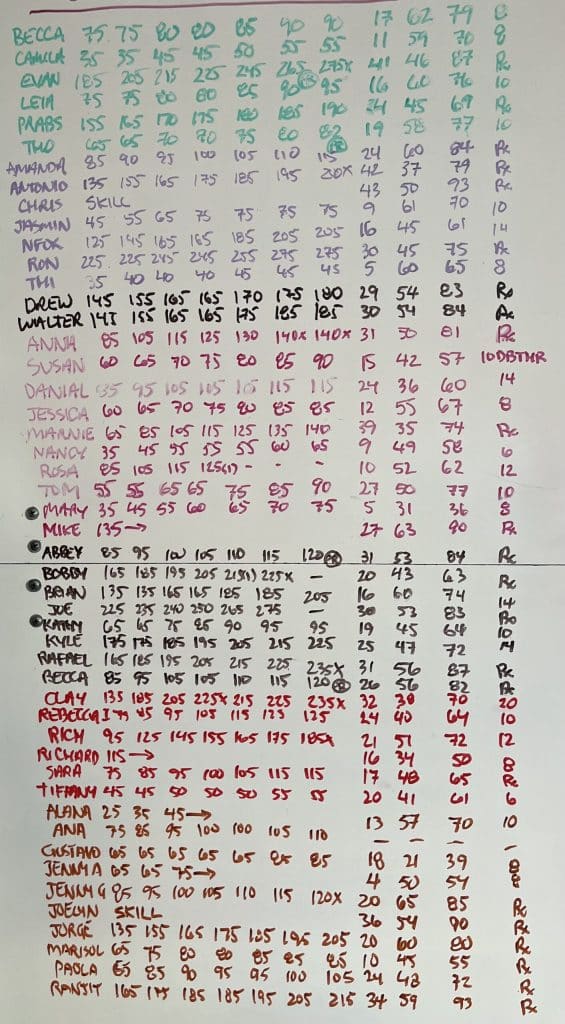 BECCA 75 75 80 80 85 90 90 17 62 79 8
CAMILA 35 35 45 45 50 55 55 11 59 70 8
EVAN 185 205 215 225 245 265 275X 41 46 87 Rx
LEIA 75 75 80 80 85 90 PR 95 16 60 76 10
PRABS 155 165 170 175 180 185 190 24 45 69 Rx
THO 65 65 70 70 75 80 82 PR 19 58 77 10
AMANDA 85 90 95 100 105 110 115 24 60 84 Rx
ANTONIO 135 155 165 175 185 195 200X 42 37 79 Rx
CHRIS SKILL 43 50 93 Rx
JASMIN 45 55 65 75 75 75 75 9 61 70 10
NFOX 125 145 165 165 185 205 205 16 45 61 14
RON 225 225 245 245 255 275 275 30 45 75 Rx
THI 35 40 40 40 45 45 45 5 60 65 8
DREW 145 155 165 165 170 175 180 29 54 83 Rx
WALTER 145 155 165 165 175 185 185 30 54 84 Rx
ANNA 85 105 115 125 130 140X 140X 31 50 81 Rx
SUSAN 60 65 70 75 80 85 90 15 42 57 10 DBTMR
DANIAL 95 95 105 105 105 115 115 24 36 60 14
JESSICA 60 65 70 75 80 85 85 12 55 67 8
MARNIE 65 85 105 115 125 135 140 39 35 74 Rx
NANCY 35 45 55 55 55 60 65 9 49 58 6
ROSA 85 105 115 125(1) - - - 10 52 62 12
TOM 55 55 65 65 75 85 90 27 50 77 10
MARY 35 45 55 60 65 70 75 5 31 36 8
MIKE 135→ 27 63 90 Rx
ABBEY 85 95 100 105 110 115 120 PR 31 53 84 Rx
BOBBY 165 185 195 205 215(1) 225X - 20 43 63 Rx
BRIAN 135 135 165 165 185 185 205 16 60 74 14
JOE 225 235 240 250 265 275 - 30 53 83 Rx
KATHY 65 65 75 85 90 95 95 19 45 64 10
KYLE 175 175 185 195 205 215 225 25 47 72 14
RAFAEL 165 185 195 205 215 225 235X 31 56 87 Rx
BECCA 85 95 105 105 110 115 120 PR 26 56 82 Rx
CLAY 135 185 205 225X 215 225 235X 32 38 70 20
REBECCA I 75 85 95 105 115 125 125 24 40 64 10
RICH 95 125 145 155 165 175 185X 21 51 72 12
RICHARD 115→ 16 34 50 8
SARA 75 85 95 100 105 115 115 17 48 65 Rx
TIFFANY 45 45 50 50 50 55 55 20 41 61 6
ALANA 25 35 45→ 13 57 70 10
ANA 75 85 95 100 100 105 110 - - - -
GUSTAVO 65 65 65 65 65 85 85 18 21 39 8
JENNY A 65 65 75→ 4 50 54 8
JENNY G 85 95 100 105 110 115 120X 20 65 85 Rx
JOELYN SKILL 36 54 90 Rx
JORGE 135 155 165 175 185 195 205 20 60 80 Rx
MARISOL 65 75 80 80 85 85 85 10 45 55 Rx
PAOLA 65 85 90 95 95 100 105 24 48 72 Rx
RANJIT 165 175 185 185 195 205 215 34 59 93 Rx